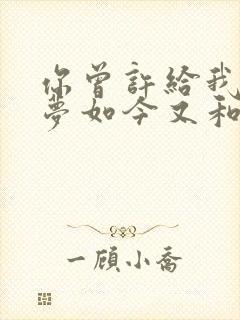 你曾許給我
夢如今又和
一顾小喬